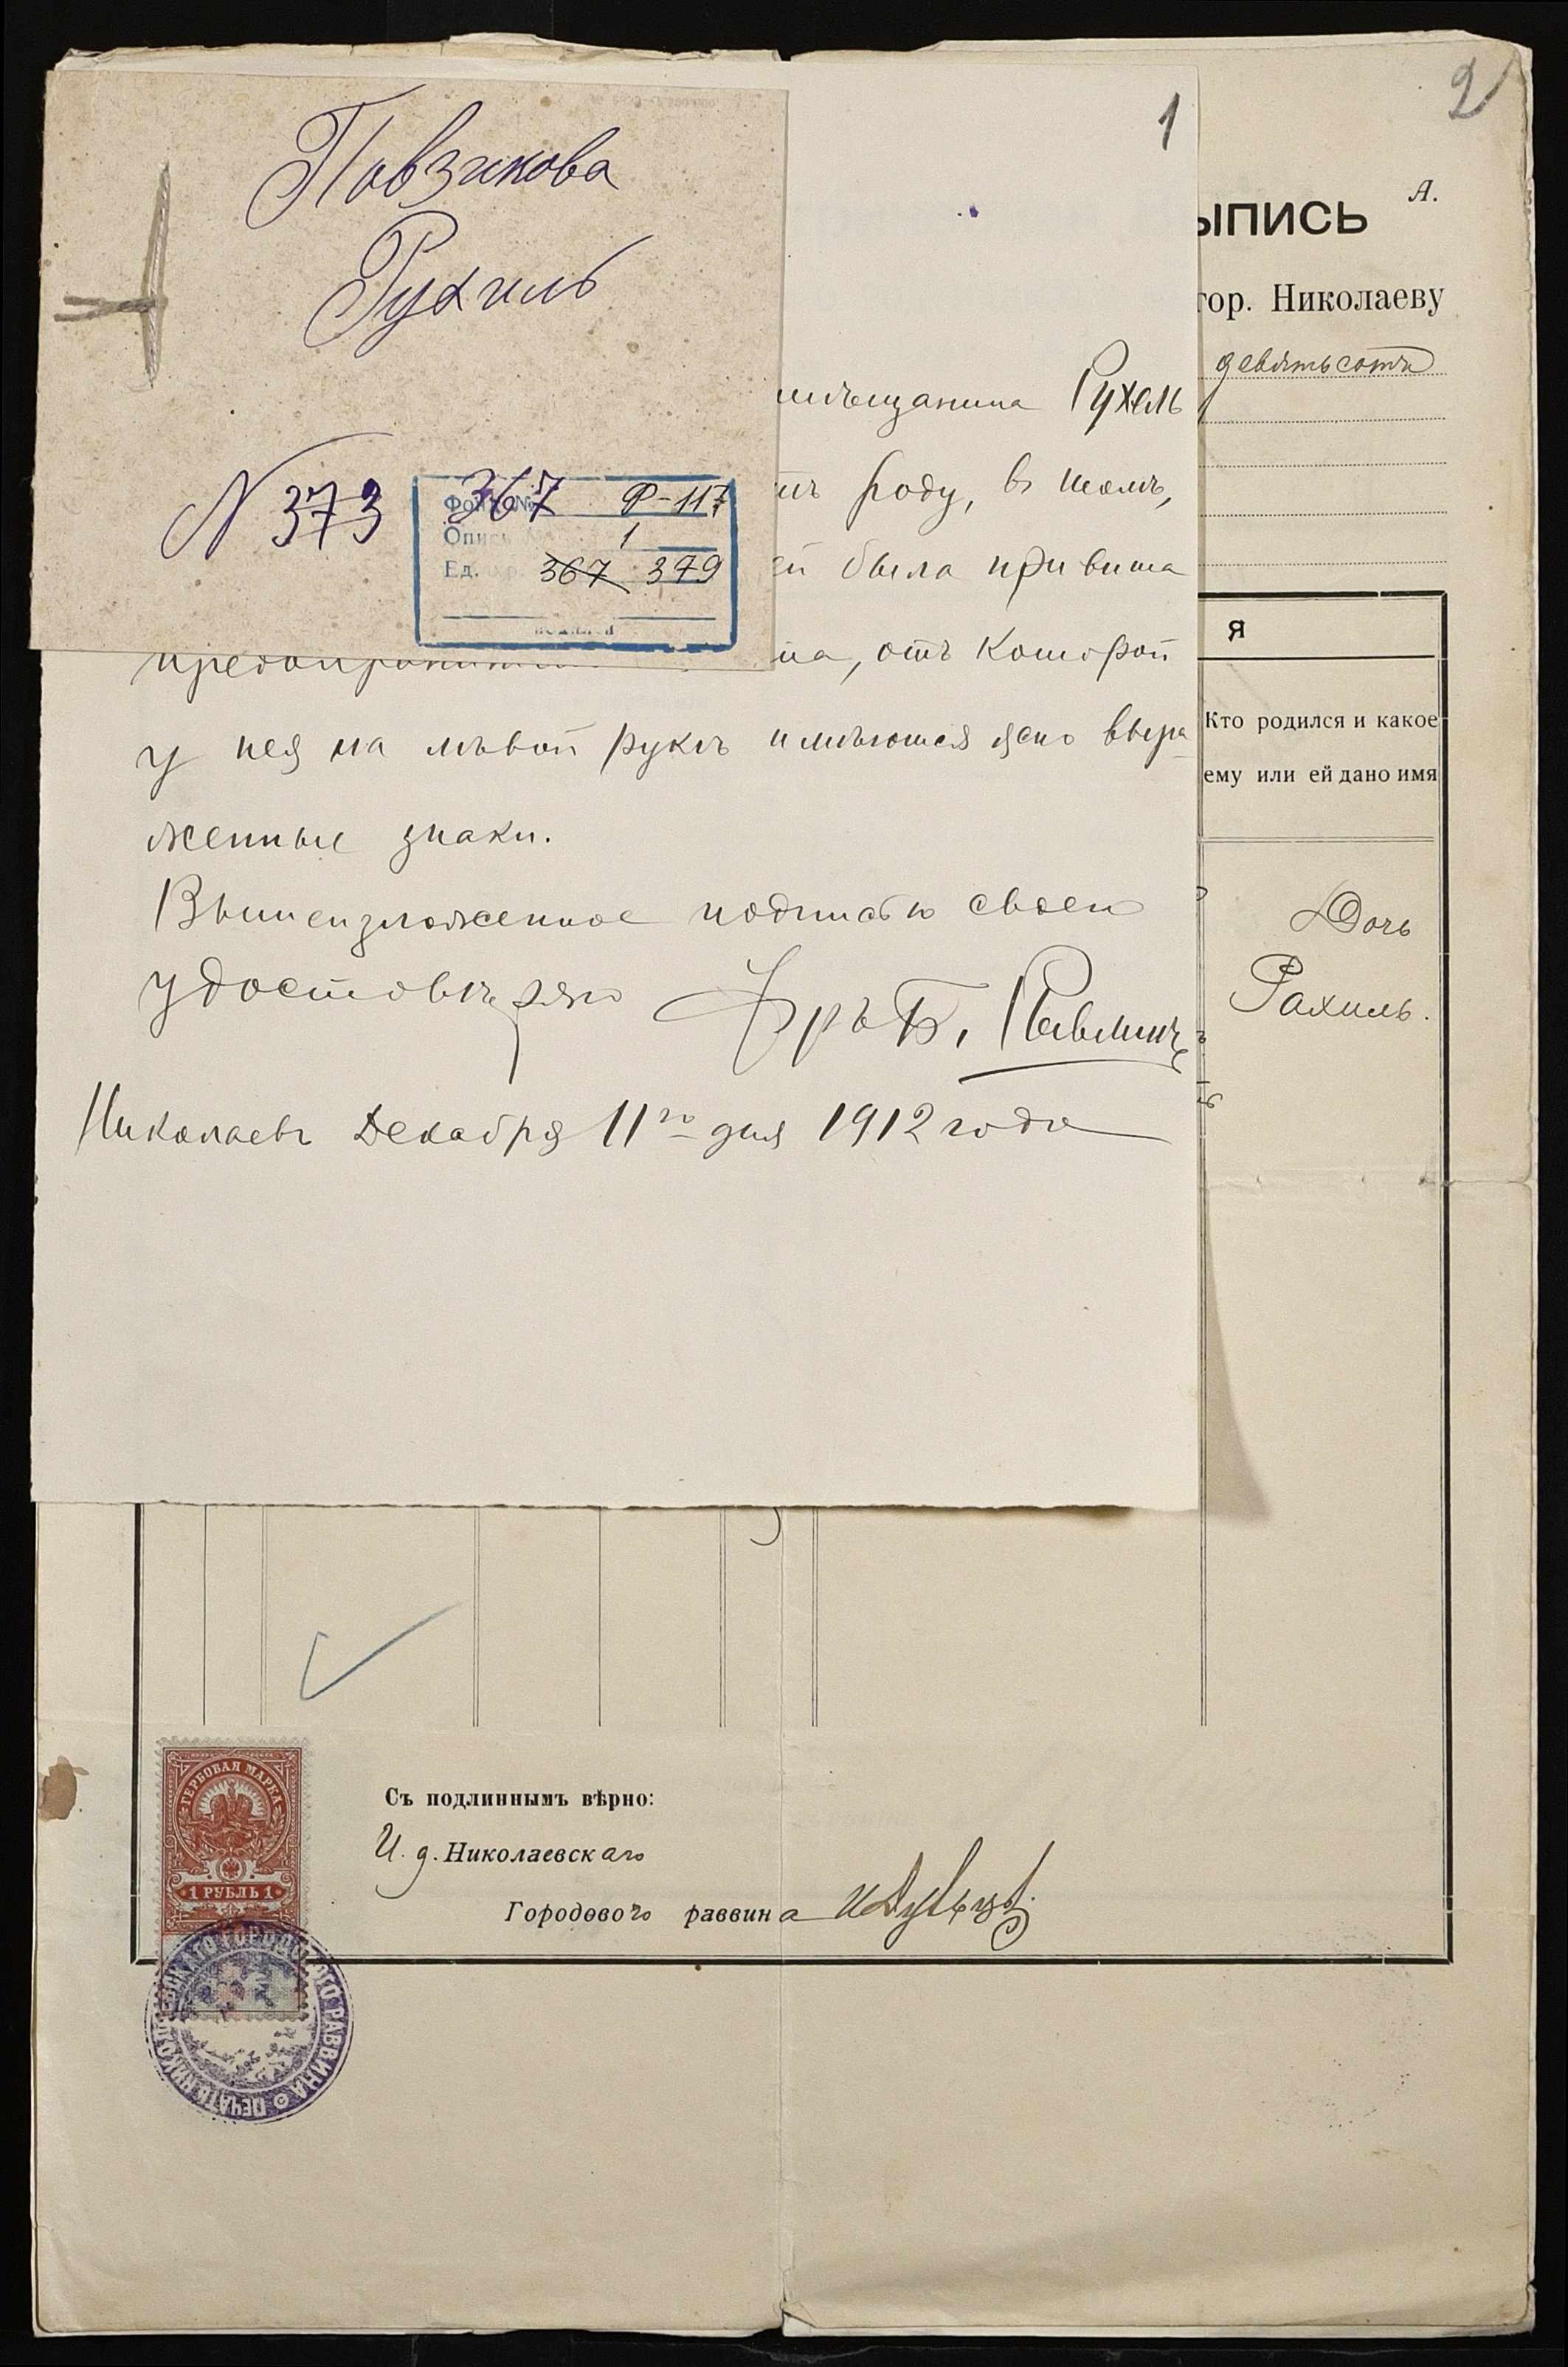 Павзикова
Рухиль
N 373
Фонд № 367 Р-117
Опись № 1
Ед. хр. 367 379
1
мѣщанина Рухель
роду, въ томъ,
ей была привита
предохранительная оспа, отъ которой
у нея на лѣвой рукѣ имѣются ясно выра-
женные знаки.
Вышеизложенное подписью своею
удостовѣряю Врѣ Б. Павлин
Николаевъ Декабря 11го дня 1912 года
2
А.
ЫПИСЬ
гор. Николаеву
девятьсотъ
Я
Кто родился и какое
ему или ей дано имя
Дочь
Рахиль.
ГЕРБОВАЯ МАРКА
1 РУБЛЬ 1
Съ подлиннымъ вѣрно:
И. д. Николаевскаго
Городового раввина
ПЕЧАТЬ НИКОЛАЕВСКАГО ГОРОДСКОГО РАВВИНА